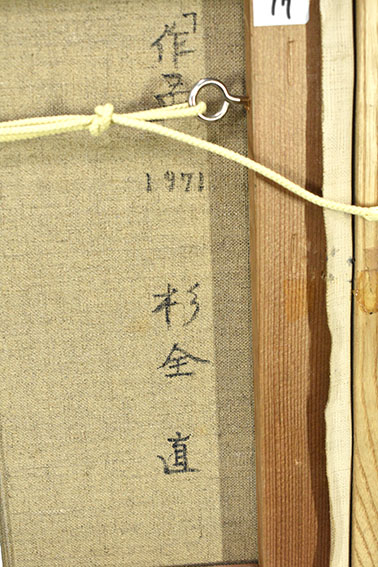 「作品
1971
杉全 直